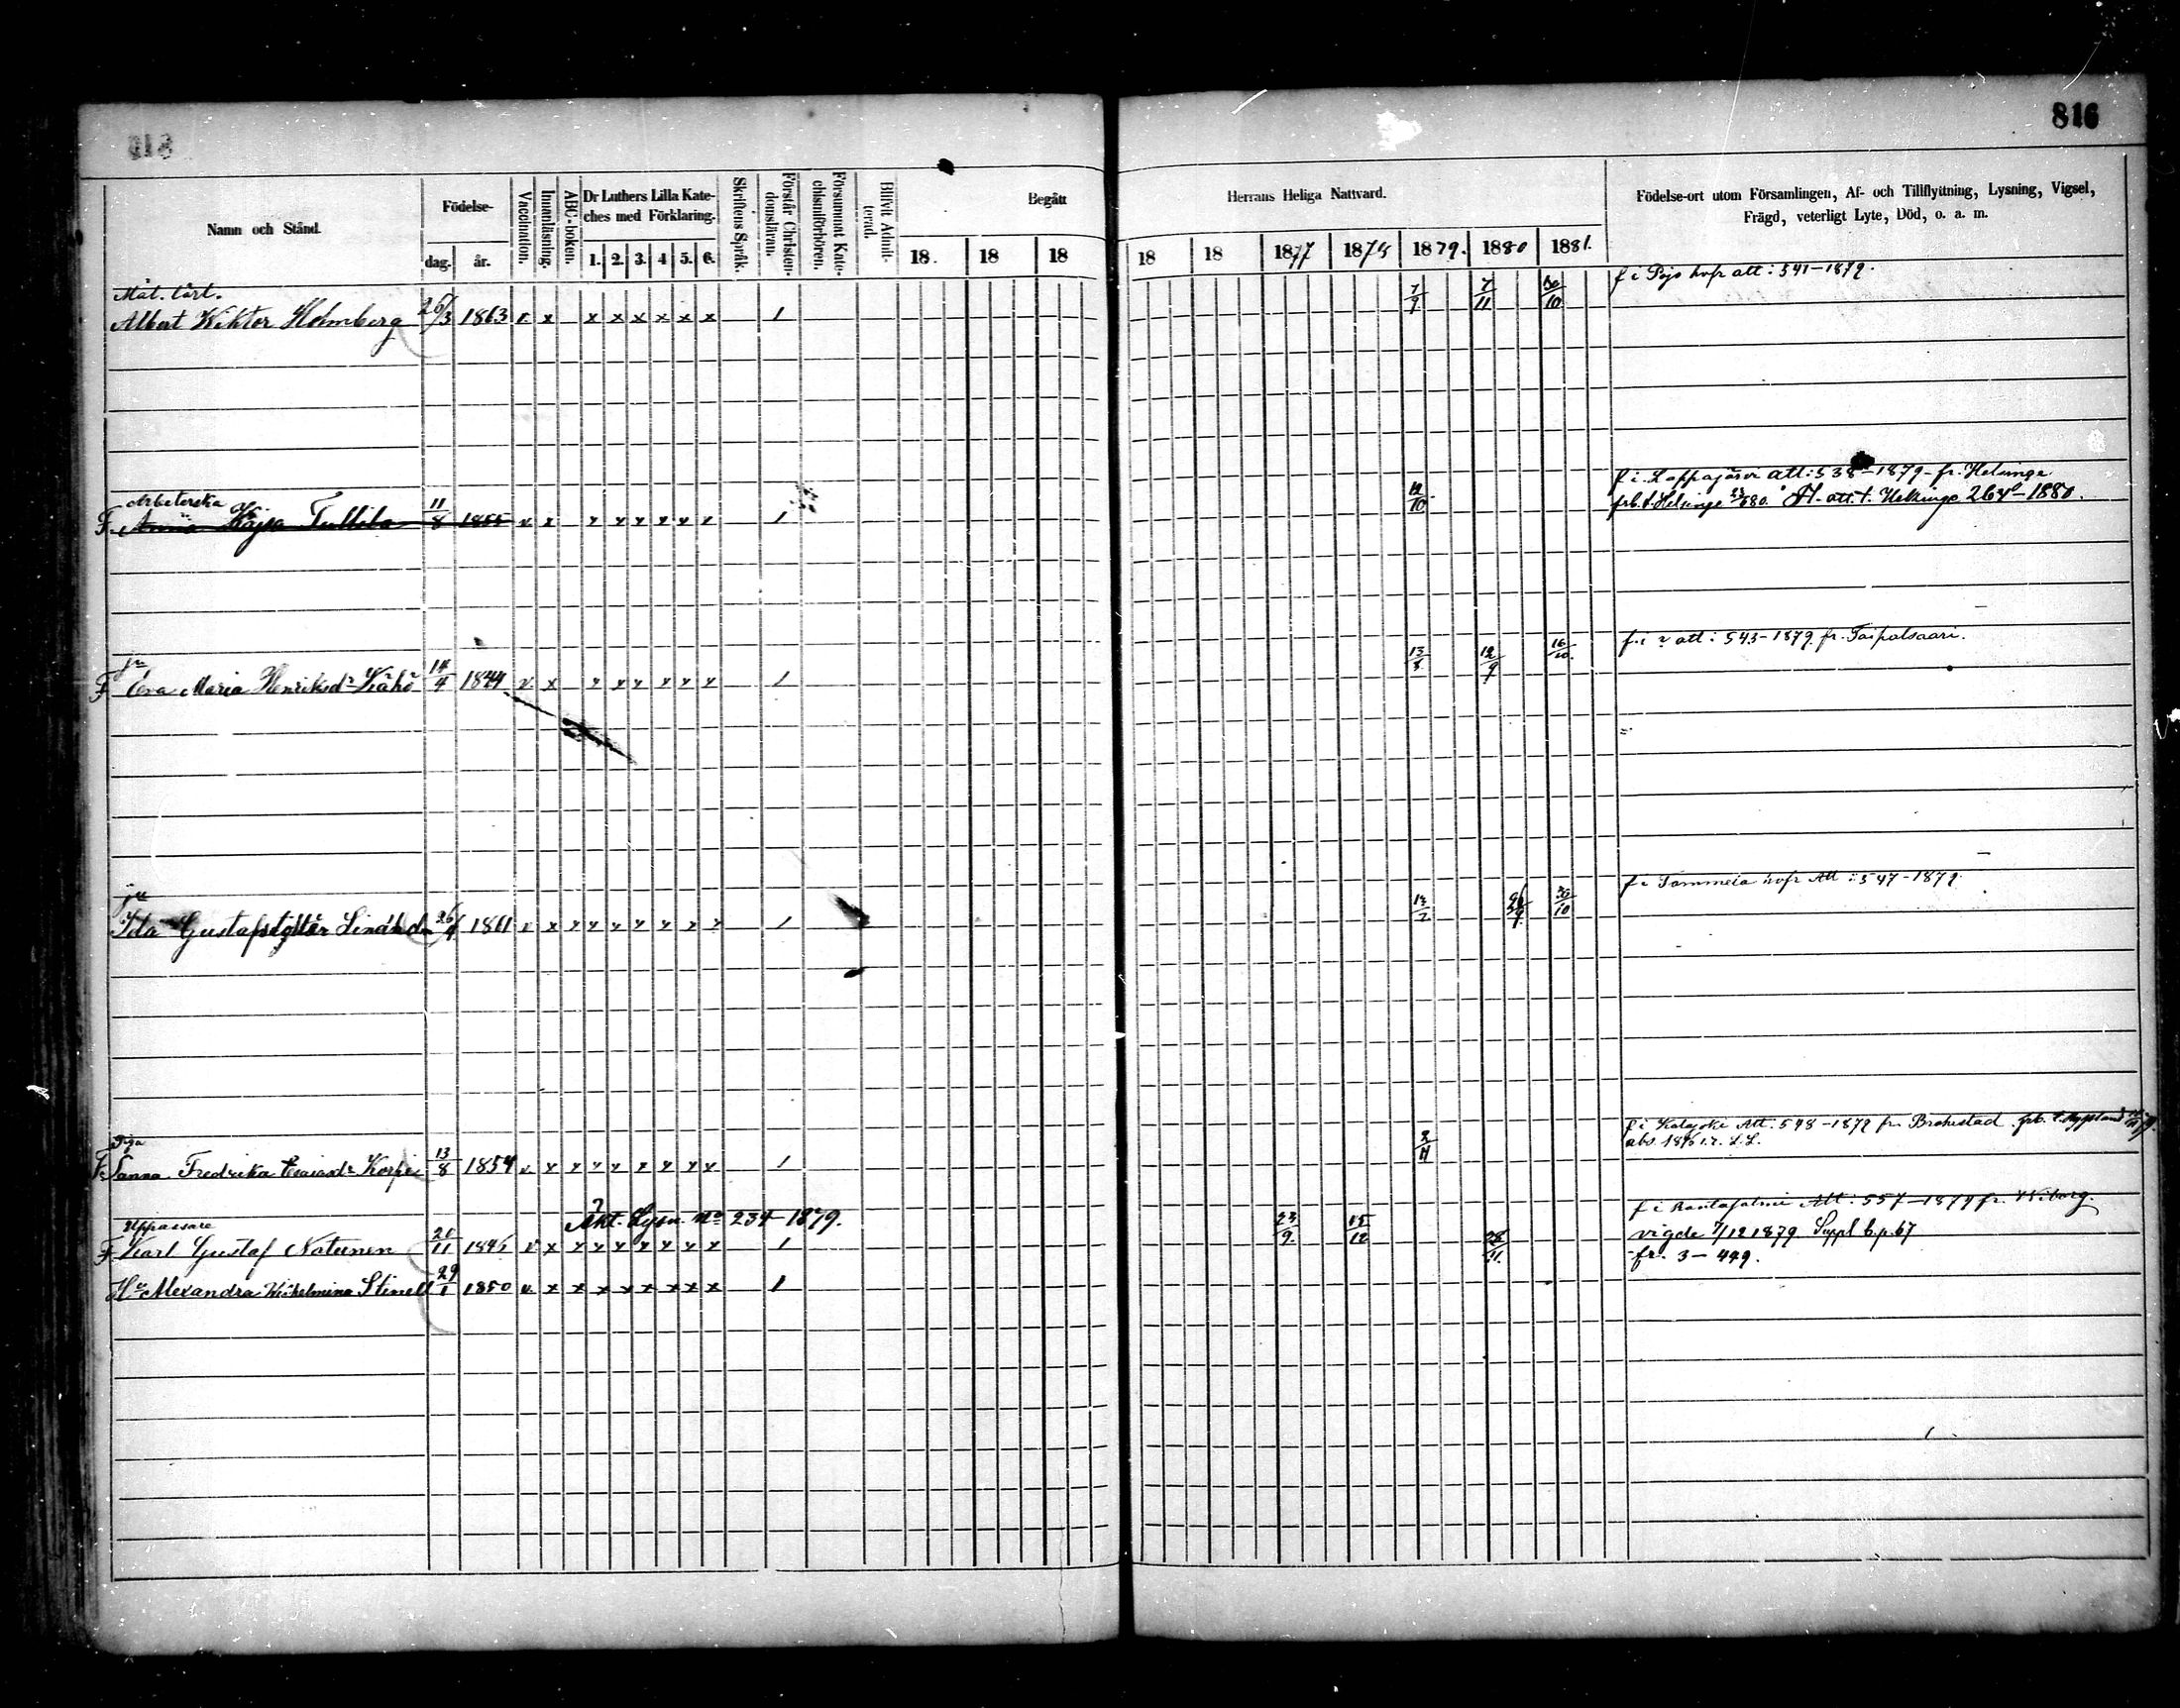 816
Namn och Stånd.
Födelse-
dag. år.
Vaccination.
Innanläsning.
ABC-boken.
Dr Luthers Lilla Kate-
ches med Förklaring.
1. 2. 3. 4 5. 6.
Skriftens Språk.
Förstår Christen-
domsläran.
Försummat Kate-
chismiförhören.
Blifvit Admit-
terad.
Begått
18. 18 18
Herrans Heliga Nattvard.
18 18 1877 1878 1879. 1880 1881.
Födelse-ort utom Församlingen, Af- och Tillflyttning, Lysning, Vigsel,
Frägd, veterligt Lyte, Död, o. a. m.
Mål. lärl. f i Pojo hofr att: 541-1879.
Albert Wiktor Holmberg 26/3 1863 v x x x x x x x / 7/9 7/11 30/10
Arbeterska f i Lappajärvi att: 538-1879 fr. Helsinge.
F. Anna Kajsa Tullila 11/8 1855 v x x x x x x x / 12/10 frb. t. Helsinge att. t. Helsinge 264-1880.
f. i ? att: 543-1879 fr. Taipalsaari.
F Eva Maria Henriksdr Kähö 14/4 1844 v x x x x x x x / 13/8 12/9 16/10
f i Tammela hofr Att: 547-1879.
Ida Gustafsdotter 26/4 1861 v x x x x x x x x / 30/10
Piga f i Kalajoki Att: 548-1879 fr. Brahestad. frb. t. Ryssland
F. Sanna Fredrika Esaiasdr Korpi 13/8 1854 v x x x x x x x x / 2/11
Äkt. Lysn. No 234-1879.
Uppassare f i Rantasalmi Att: 557-1879 fr. Wiborg.
F Karl Gustaf Natunen 20/11 1845 v x x x x x x x x / 23/9. 15/12 28/11. vigde 7/12 1879 Suppl b. p. 67
fr. 3-449.
Hu Alexandra Wilhelmina Stinell 29/1 1850 v. x x x x x x x x /